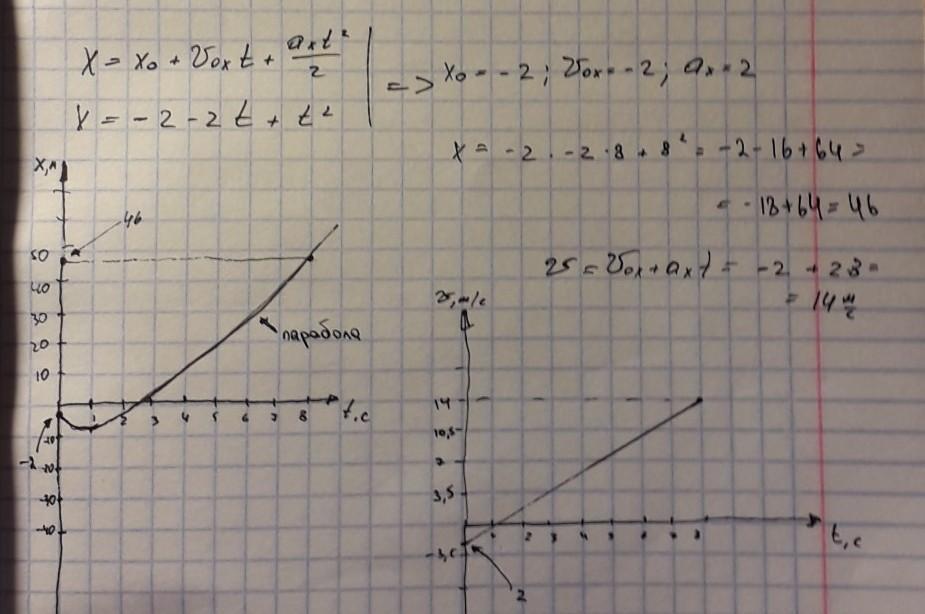 x = x₀ + v₀ₓt + aₓt²/2
=> x₀ = -2 ; v₀ₓ = -2 ; aₓ = 2
x = -2 - 2t + t²
x = -2 · -2 · 8 + 8² = -2 - 16 + 64 =
= -18 + 64 = 46
v = v₀ₓ + aₓt = -2 + 2·8 =
= 14 м/с
x, м
46
50
40
30
20
10
-10
-20
-30
-40
-2
1 2 3 4 5 6 7 8
t, с
парабола
v, м/с
14
10,5
7
3,5
-3,5
1 2 3 4 5 6 7 8
t, с
2